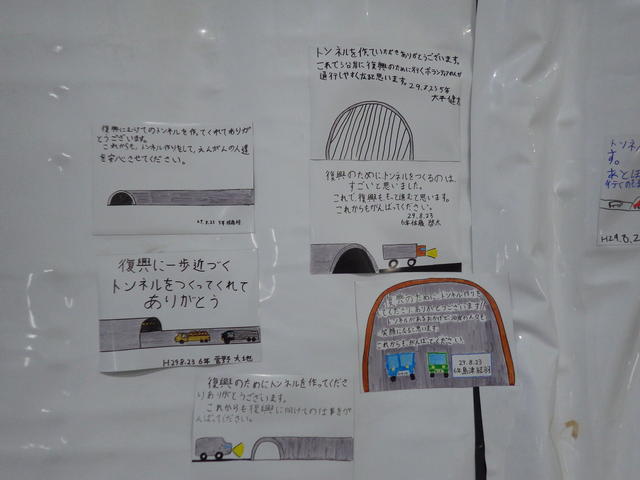 トンネルを作っていただきありがとうございます。
これで沿岸に復興のために行くボランティアの人が
通行しやすくなると思います。
29.8.23 5年
大平
復興にむけてのトンネルを作ってくれてありが
とうございます。
これからも、トンネル作りをして、えんがんの人達
を安心させてください。
29.8.23
復興のためにトンネルをつくるのは、
すごいと思いました。
これで、復興ももっと進むと思います。
これからもがんばってください。
29.8.23
6年佐藤 啓太
復興に一歩近づく
トンネルをつくってくれて
ありがとう
H29.8.23 6年 菅野 大地
復興のために、トンネル作りを
してくださいありがとうございます!
トンネルがあるおかげで沿岸の人々も
笑顔になると思います。
これからも、がんばってください!
29.8.23
6年島津
復興のためにトンネルを作ってくださ
りありがとうございます。
これからも復興に向けてのお仕事をが
んばってください。
トンネル
す。
あとは
H29.8.2